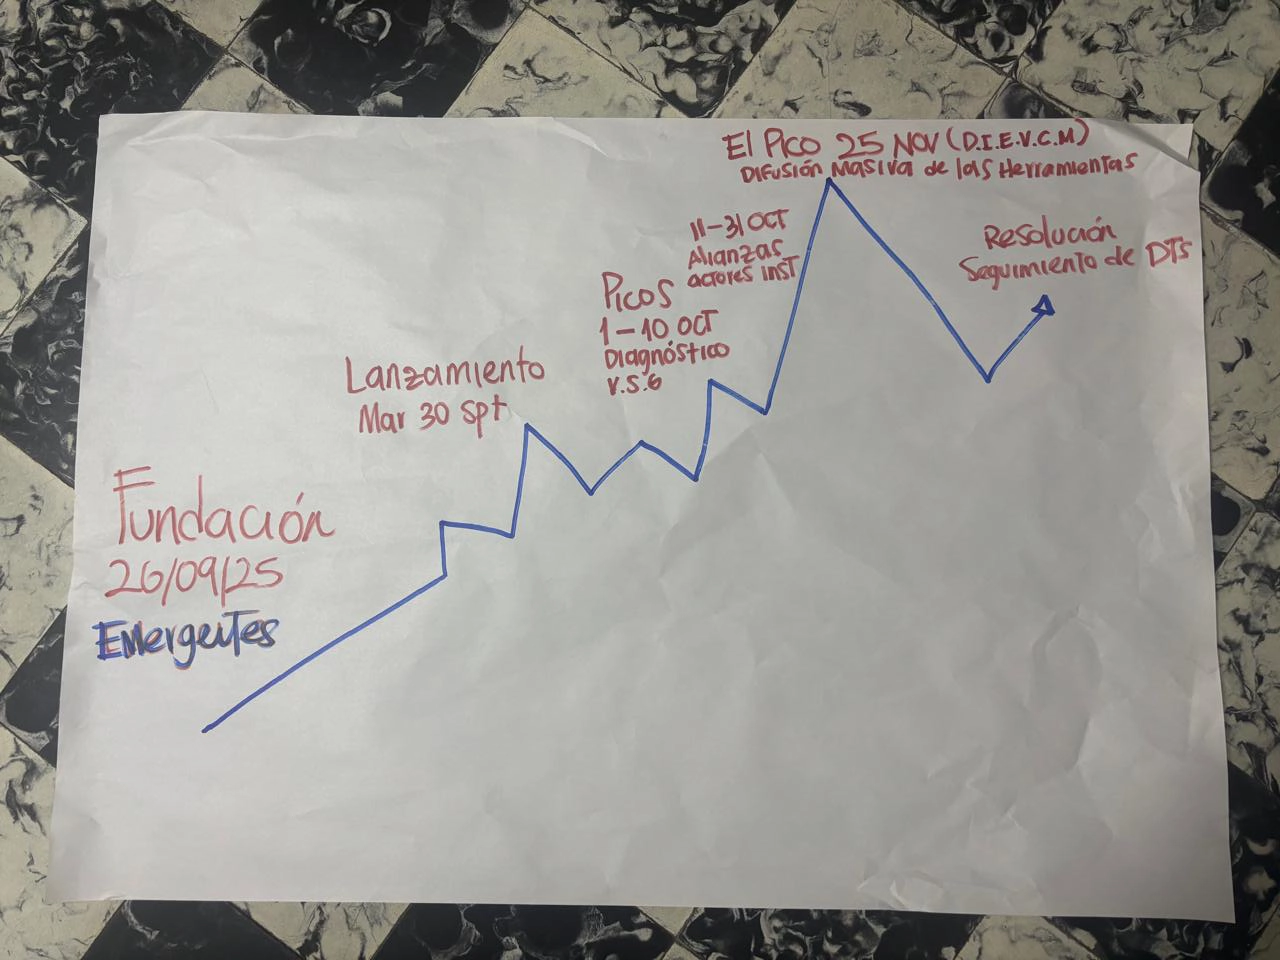 Fundación
26/09/25
Emergentes
Lanzamiento
Mar 30 Spt
Picos
1-10 OCT
Diagnóstico
V.S.G
11-31 OCT
Alianzas
actores INST
El Pico 25 NOV (D.I.E.V.C.M)
DIFUSIÓN MASIVA de las Herramientas
Resolución
Seguimiento de DTS